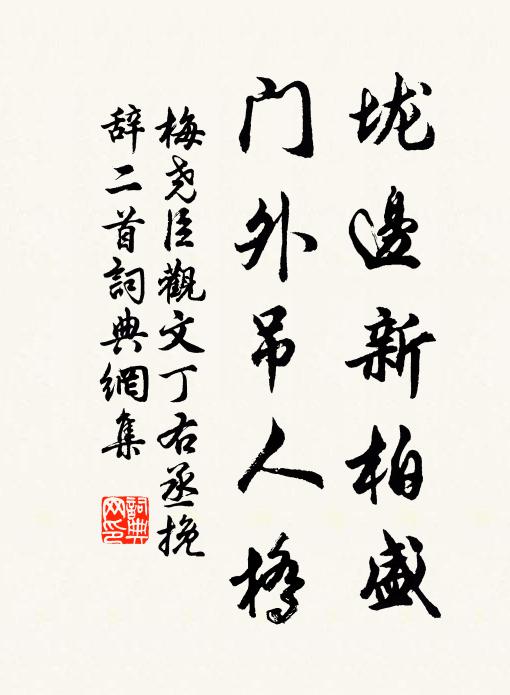 垅邊新柏盛
门外吊人橋
梅尧臣觀文丁右丞挽
辞二首詞典網集
詞典网印